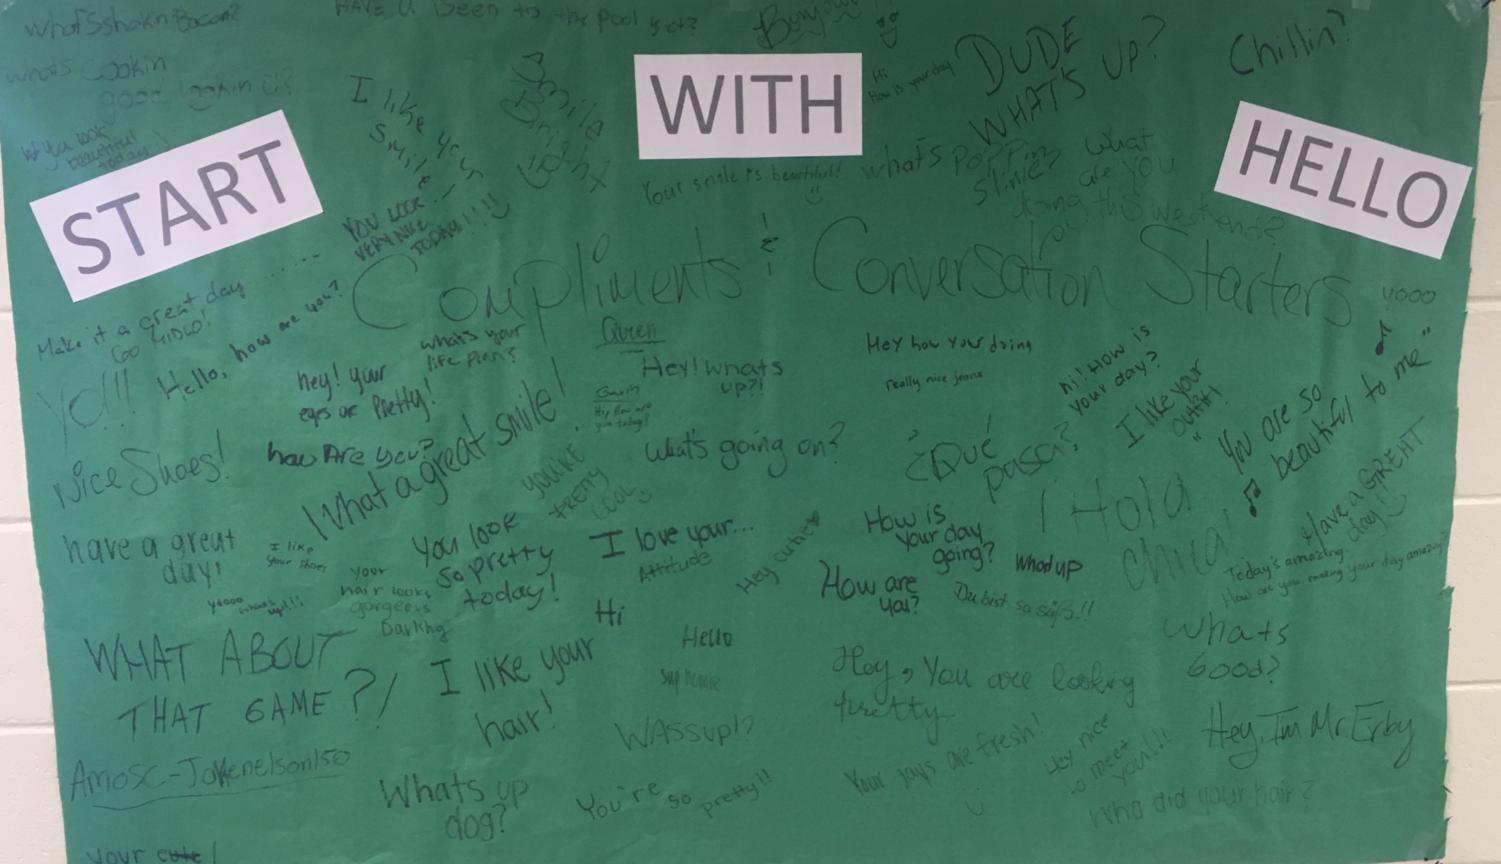 what's shakin Bacon?
whats cookin
good lookin
You look
beautiful!
today
HAVE U Been to the Pool yet?
Bonjour
I like your
smile
Smile
Bright
YOU LOOK
VERY NICE
TODAY!!!!
START
WITH
HELLO
Your smile is beautiful!!
Hi
How is your day
DUDE
WHAT'S UP?
Chillin?
what's Poppin
slime?
what
are you
doing this weekend?
Compliments & Conversation Starters
yooo
Make it a great day
GO
Hello, how are you?
Yo!!!
hey! your
eyes are Pretty!
what's your
life plan?
Queen
Hey! whats
up?!
Gavin
Hi, How are
you today?
Hey how your doing
really nice jeans
hi! How is
your day?
I like your
outfit!
"You are so
beautiful to me"
Nice Shoes!
how Are you?
What a great smile!
YOU'RE
PRETTY
COOL
What's going on?
¿Qué
pasa?
¡Hola
chica!
Have a GREAT
day!
have a great
day!
I like
your shoes
yoooo whats up!!!
your
hair looks
gorgeous
Darling
You look
so pretty
today!
I love your...
Attitude
Hey cutie
How is
your day
going?
Whod up
How are
you?
Du bist so süß!!
Today's amazing.
How are you making your day amazing?
Hi
Hello
sup homie
WASSUP!?
WHAT ABOUT
THAT GAME?!
I like your
hair!
Hey, You are looking
pretty
Whats
Good?
Hey, I'm Mr. Erby
Amosc-Jakenelson150
Whats up
dog?
You're so pretty!!
Your jays are fresh!
Hey nice
to meet
you!!!
Who did your hair?
your cute!